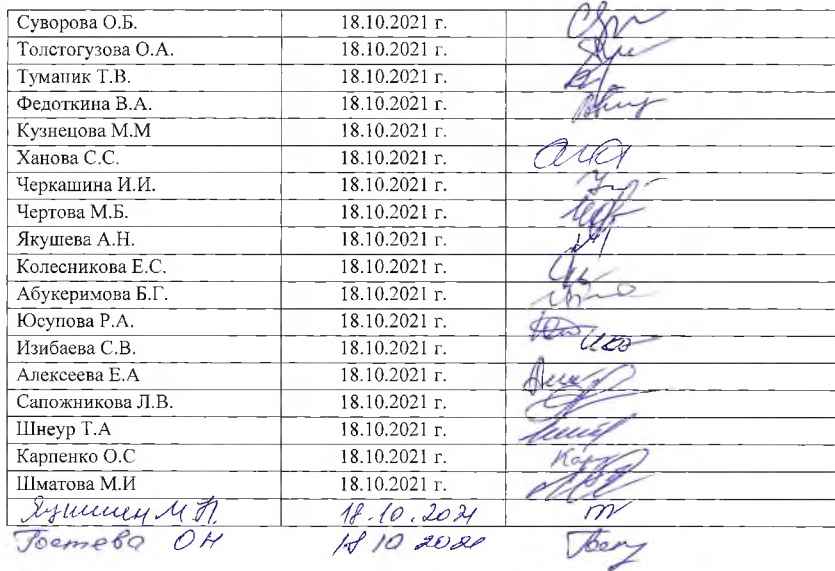 Суворова О.Б. 18.10.2021 г.
Толстогузова О.А. 18.10.2021 г.
Туманик Т.В. 18.10.2021 г.
Федоткина В.А. 18.10.2021 г.
Кузнецова М.М 18.10.2021 г.
Ханова С.С. 18.10.2021 г.
Черкашина И.И. 18.10.2021 г.
Чертова М.Б. 18.10.2021 г.
Якушева А.Н. 18.10.2021 г.
Колесникова Е.С. 18.10.2021 г.
Абукеримова Б.Г. 18.10.2021 г.
Юсупова Р.А. 18.10.2021 г.
Изибаева С.В. 18.10.2021 г.
Алексеева Е.А 18.10.2021 г.
Сапожникова Л.В. 18.10.2021 г.
Шнеур Т.А 18.10.2021 г.
Карпенко О.С 18.10.2021 г.
Шматова М.И 18.10.2021 г.
М.П. 18.10.2021
ОН 18 10 2021